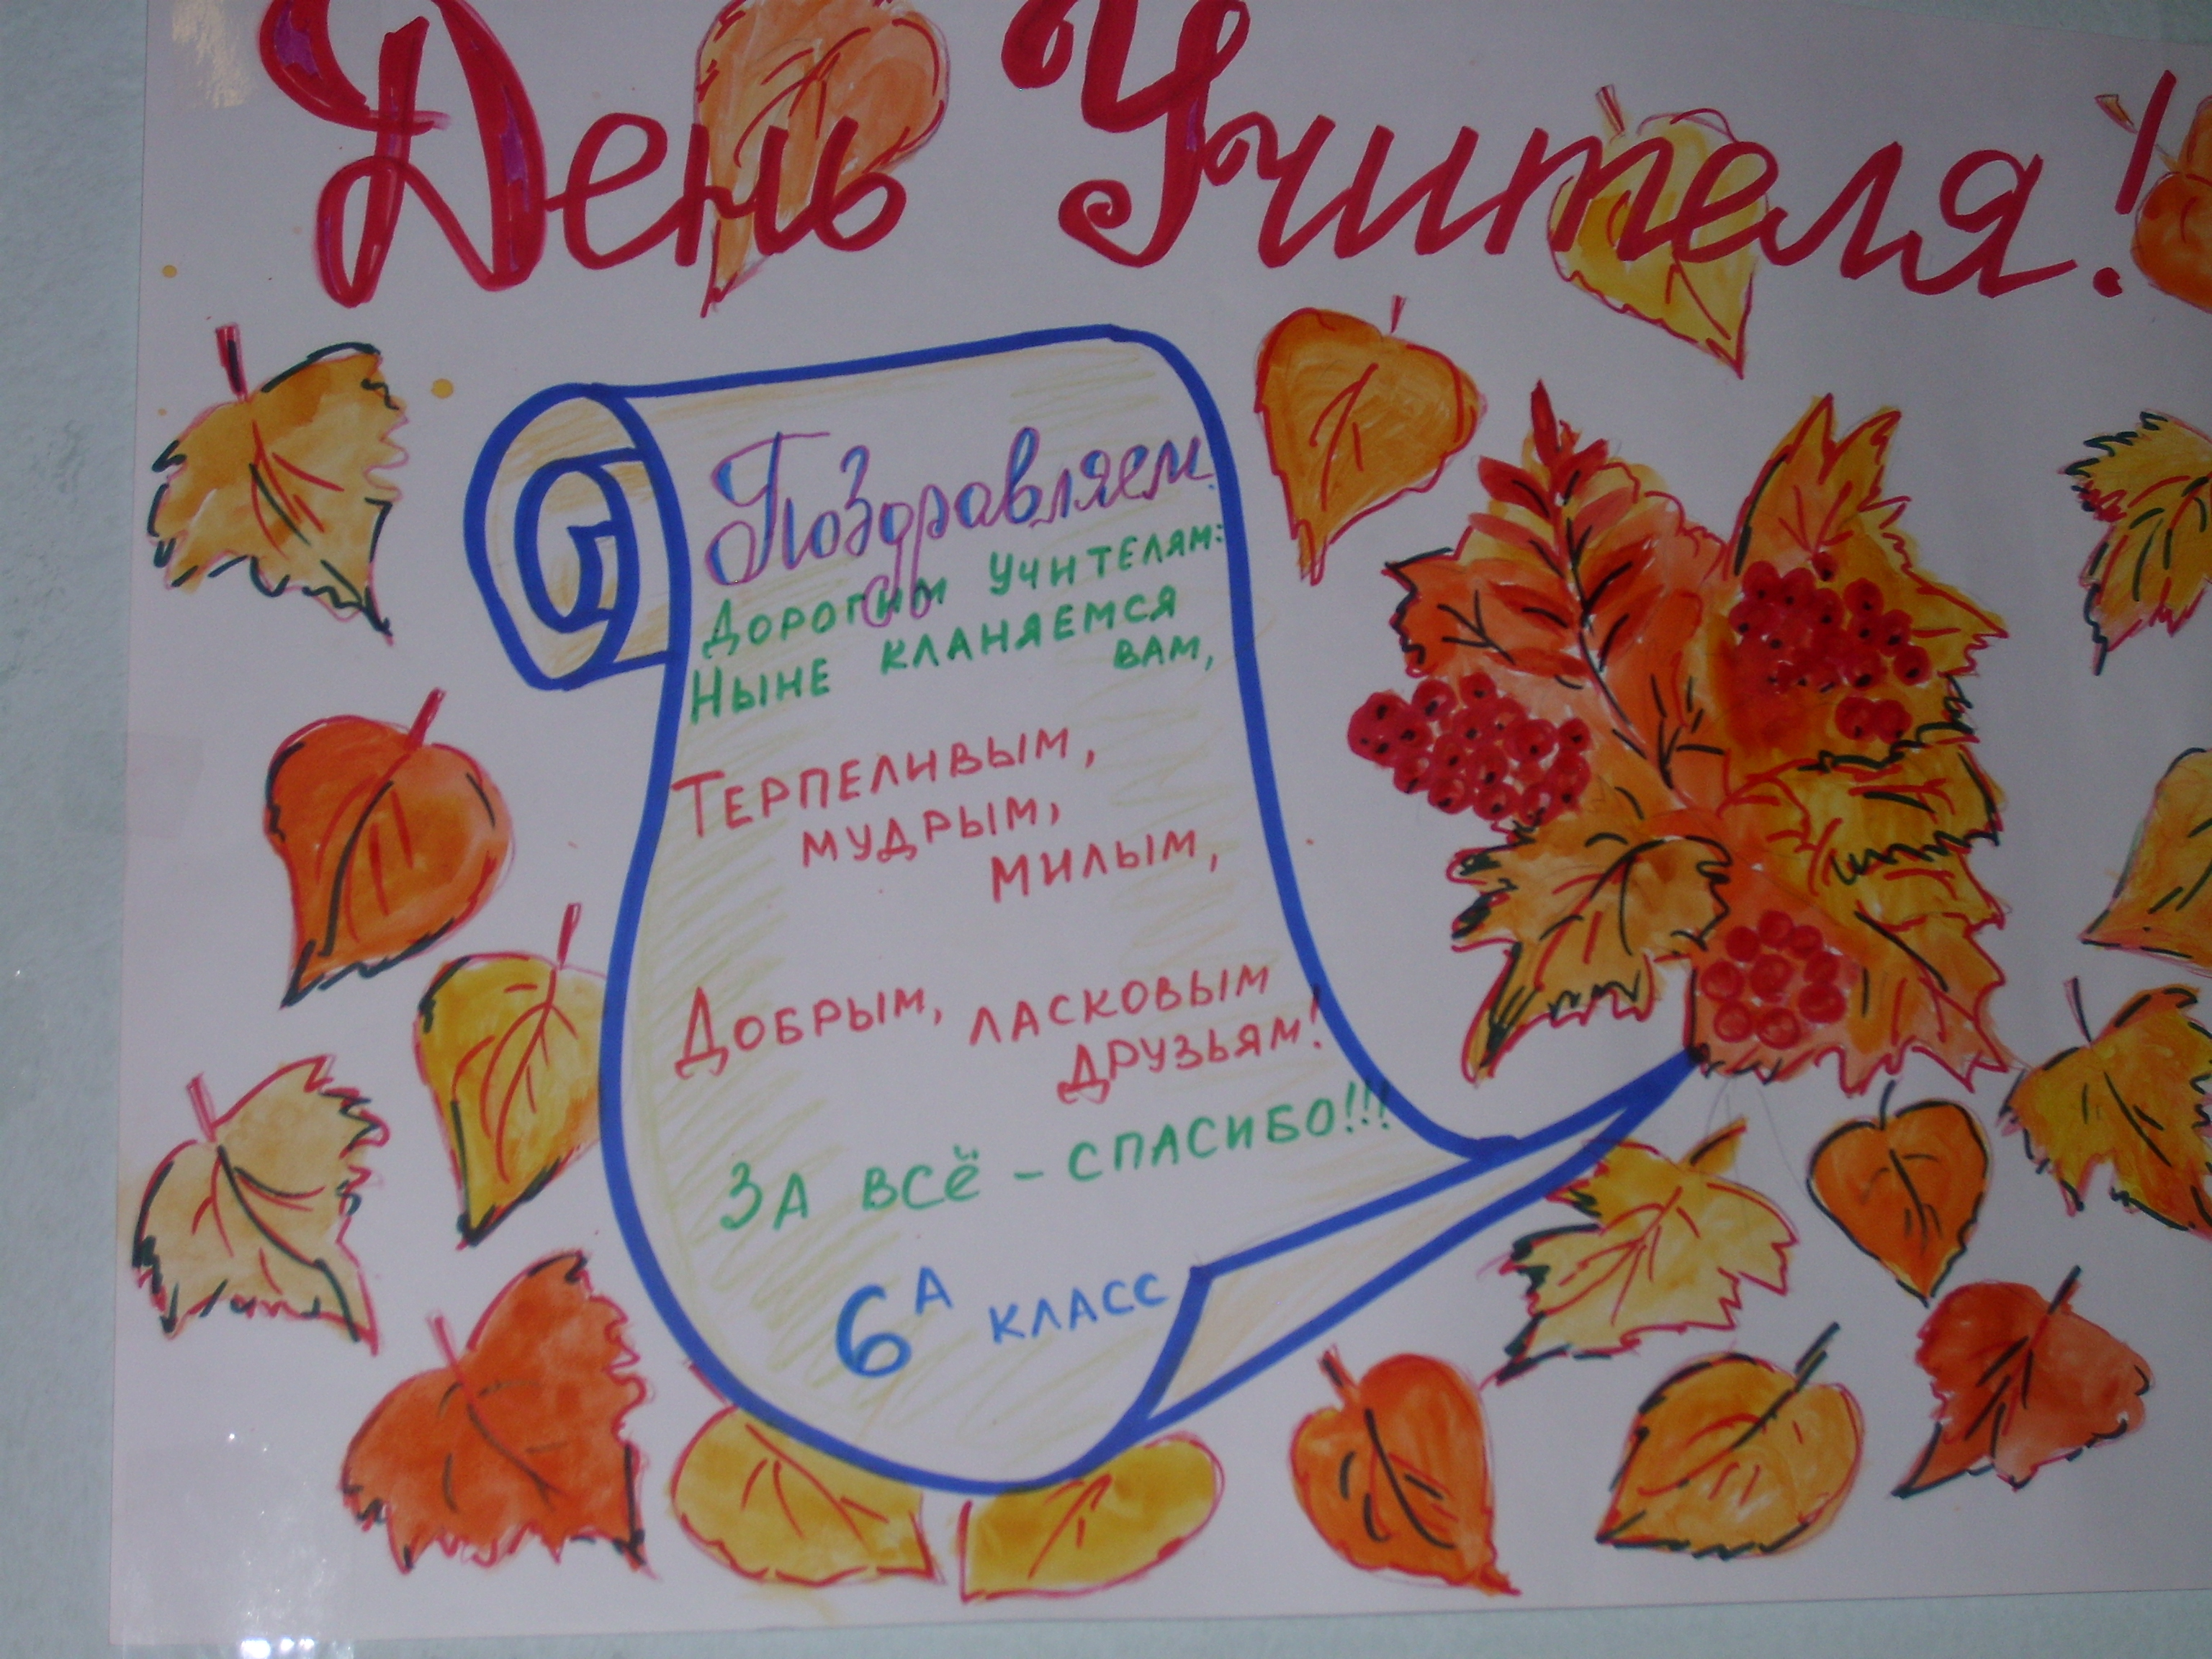 День Учителя!
Поздравляем.
Дорогим учителям:
Ныне кланяемся
вам,
Терпеливым,
мудрым,
милым,
Добрым, ласковым
друзьям!
За всё – спасибо!!!
6А класс